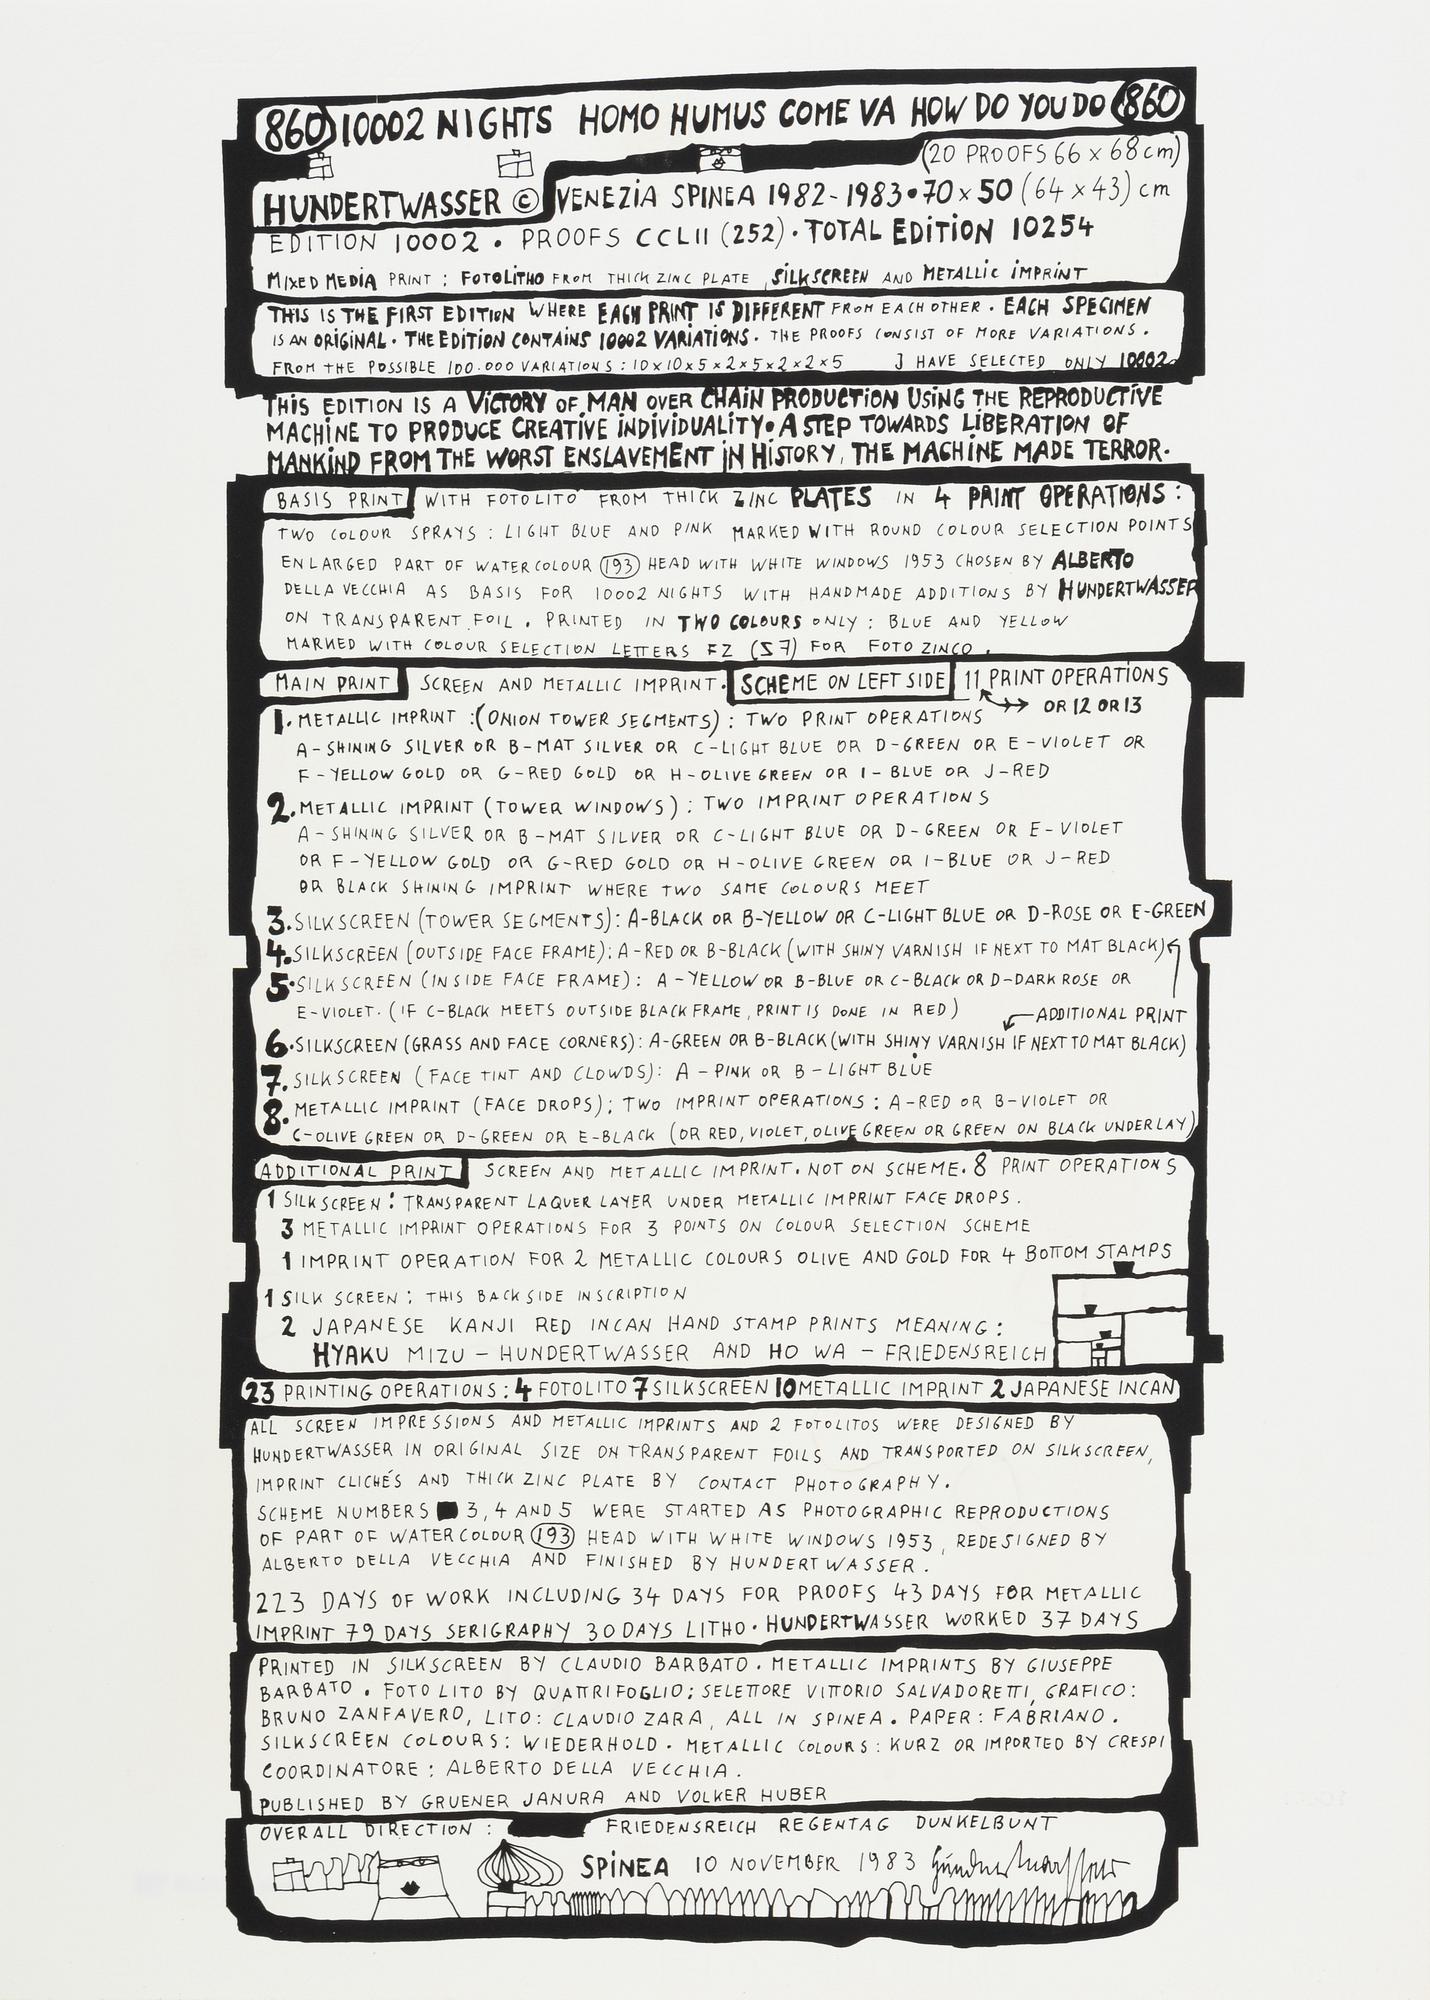 860 10002 NIGHTS HOMO HUMUS COME VA HOW DO YOU DO 860
(20 PROOFS 66 x 68 cm)
HUNDERTWASSER © VENEZIA SPINEA 1982-1983 • 70 x 50 (64 x 43) cm
EDITION 10002 • PROOFS CCLII (252) • TOTAL EDITION 10254
MIXED MEDIA PRINT : FOTOLITHO FROM THICK ZINC PLATE , SILKSCREEN AND METALLIC IMPRINT
THIS IS THE FIRST EDITION WHERE EACH PRINT IS DIFFERENT FROM EACH OTHER • EACH SPECIMEN
IS AN ORIGINAL • THE EDITION CONTAINS 10002 VARIATIONS • THE PROOFS CONSIST OF MORE VARIATIONS .
FROM THE POSSIBLE 100.000 VARIATIONS : 10x10x5x2x5x2x2x5 J HAVE SELECTED ONLY 10002
THIS EDITION IS A VICTORY OF MAN OVER CHAIN PRODUCTION USING THE REPRODUCTIVE
MACHINE TO PRODUCE CREATIVE INDIVIDUALITY • A STEP TOWARDS LIBERATION OF
MANKIND FROM THE WORST ENSLAVEMENT IN HISTORY, THE MACHINE MADE TERROR.
BASIS PRINT WITH FOTOLITO FROM THICK ZINC PLATES IN 4 PRINT OPERATIONS :
TWO COLOUR SPRAYS : LIGHT BLUE AND PINK MARKED WITH ROUND COLOUR SELECTION POINTS
ENLARGED PART OF WATERCOLOUR 193 HEAD WITH WHITE WINDOWS 1953 CHOSEN BY ALBERTO
DELLA VECCHIA AS BASIS FOR 10002 NIGHTS WITH HANDMADE ADDITIONS BY HUNDERTWASSER
ON TRANSPARENT FOIL . PRINTED IN TWO COLOURS ONLY : BLUE AND YELLOW
MARKED WITH COLOUR SELECTION LETTERS FZ (S7) FOR FOTO ZINCO .
MAIN PRINT SCREEN AND METALLIC IMPRINT • SCHEME ON LEFT SIDE 11 PRINT OPERATIONS
OR 12 OR 13
1. METALLIC IMPRINT : (ONION TOWER SEGMENTS) : TWO PRINT OPERATIONS
A-SHINING SILVER OR B-MAT SILVER OR C-LIGHT BLUE OR D-GREEN OR E-VIOLET OR
F-YELLOW GOLD OR G-RED GOLD OR H-OLIVE GREEN OR I-BLUE OR J-RED
2. METALLIC IMPRINT (TOWER WINDOWS) : TWO IMPRINT OPERATIONS
A-SHINING SILVER OR B-MAT SILVER OR C-LIGHT BLUE OR D-GREEN OR E-VIOLET
OR F-YELLOW GOLD OR G-RED GOLD OR H-OLIVE GREEN OR I-BLUE OR J-RED
OR BLACK SHINING IMPRINT WHERE TWO SAME COLOURS MEET
3. SILKSCREEN (TOWER SEGMENTS): A-BLACK OR B-YELLOW OR C-LIGHT BLUE OR D-ROSE OR E-GREEN
4. SILKSCREEN (OUTSIDE FACE FRAME): A-RED OR B-BLACK (WITH SHINY VARNISH IF NEXT TO MAT BLACK)
5. SILKSCREEN (INSIDE FACE FRAME): A-YELLOW OR B-BLUE OR C-BLACK OR D-DARK ROSE OR
E-VIOLET. (IF C-BLACK MEETS OUTSIDE BLACK FRAME, PRINT IS DONE IN RED)
ADDITIONAL PRINT
6. SILKSCREEN (GRASS AND FACE CORNERS): A-GREEN OR B-BLACK (WITH SHINY VARNISH IF NEXT TO MAT BLACK)
7. SILKSCREEN (FACE TINT AND CLOWDS): A-PINK OR B-LIGHT BLUE
8. METALLIC IMPRINT (FACE DROPS); TWO IMPRINT OPERATIONS : A-RED OR B-VIOLET OR
C-OLIVE GREEN OR D-GREEN OR E-BLACK (OR RED, VIOLET, OLIVE GREEN OR GREEN ON BLACK UNDERLAY)
ADDITIONAL PRINT SCREEN AND METALLIC IMPRINT. NOT ON SCHEME. 8 PRINT OPERATIONS
1 SILKSCREEN : TRANSPARENT LAQUER LAYER UNDER METALLIC IMPRINT FACE DROPS .
3 METALLIC IMPRINT OPERATIONS FOR 3 POINTS ON COLOUR SELECTION SCHEME
1 IMPRINT OPERATION FOR 2 METALLIC COLOURS OLIVE AND GOLD FOR 4 BOTTOM STAMPS
1 SILK SCREEN : THIS BACKSIDE INSCRIPTION
2 JAPANESE KANJI RED INCAN HAND STAMP PRINTS MEANING :
HYAKU MIZU – HUNDERTWASSER AND HO WA – FRIEDENSREICH
23 PRINTING OPERATIONS : 4 FOTOLITO 7 SILKSCREEN 10 METALLIC IMPRINT 2 JAPANESE INCAN
ALL SCREEN IMPRESSIONS AND METALLIC IMPRINTS AND 2 FOTOLITOS WERE DESIGNED BY
HUNDERTWASSER IN ORIGINAL SIZE ON TRANSPARENT FOILS AND TRANSPORTED ON SILKSCREEN,
IMPRINT CLICHÉS AND THICK ZINC PLATE BY CONTACT PHOTOGRAPHY.
SCHEME NUMBERS 3, 4 AND 5 WERE STARTED AS PHOTOGRAPHIC REPRODUCTIONS
OF PART OF WATERCOLOUR 193 HEAD WITH WHITE WINDOWS 1953, REDESIGNED BY
ALBERTO DELLA VECCHIA AND FINISHED BY HUNDERTWASSER .
223 DAYS OF WORK INCLUDING 34 DAYS FOR PROOFS 43 DAYS FOR METALLIC
IMPRINT 79 DAYS SERIGRAPHY 30 DAYS LITHO • HUNDERTWASSER WORKED 37 DAYS
PRINTED IN SILKSCREEN BY CLAUDIO BARBATO . METALLIC IMPRINTS BY GIUSEPPE
BARBATO . FOTOLITO BY QUATTRIFOGLIO; SELETTORE VITTORIO SALVADORETTI, GRAFICO:
BRUNO ZANFAVERO, LITO: CLAUDIO ZARA, ALL IN SPINEA . PAPER: FABRIANO .
SILKSCREEN COLOURS: WIEDERHOLD • METALLIC COLOURS : KURZ OR IMPORTED BY CRESPI
COORDINATORE : ALBERTO DELLA VECCHIA .
PUBLISHED BY GRUENER JANURA AND VOLKER HUBER
OVERALL DIRECTION : FRIEDENSREICH REGENTAG DUNKELBUNT
SPINEA 10 NOVEMBER 1983 Hundertwasser